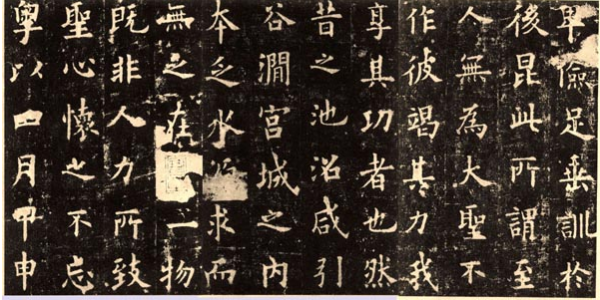 卑儉足垂訓於
後昆此所謂至
人無為大聖不
作彼竭其力我
享其功者也然
昔之池沼咸引
谷澗宮城之內
本乏水源求而
無之在一物
既非人力所致
聖心懷之不忘
粵以四月甲申